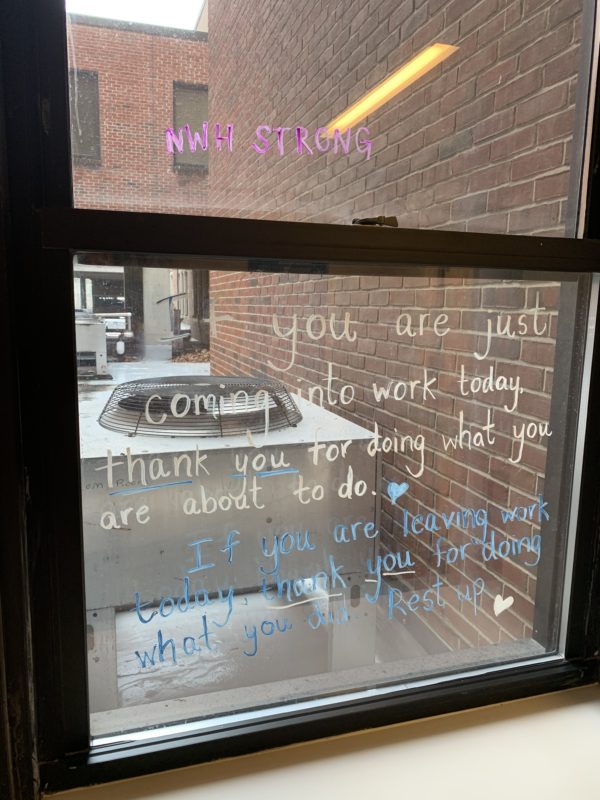 NWH STRONG
you are just
coming into work today,
thank you for doing what you
are about to do.
If you are leaving work
today, thank you for doing
what you did. Rest up